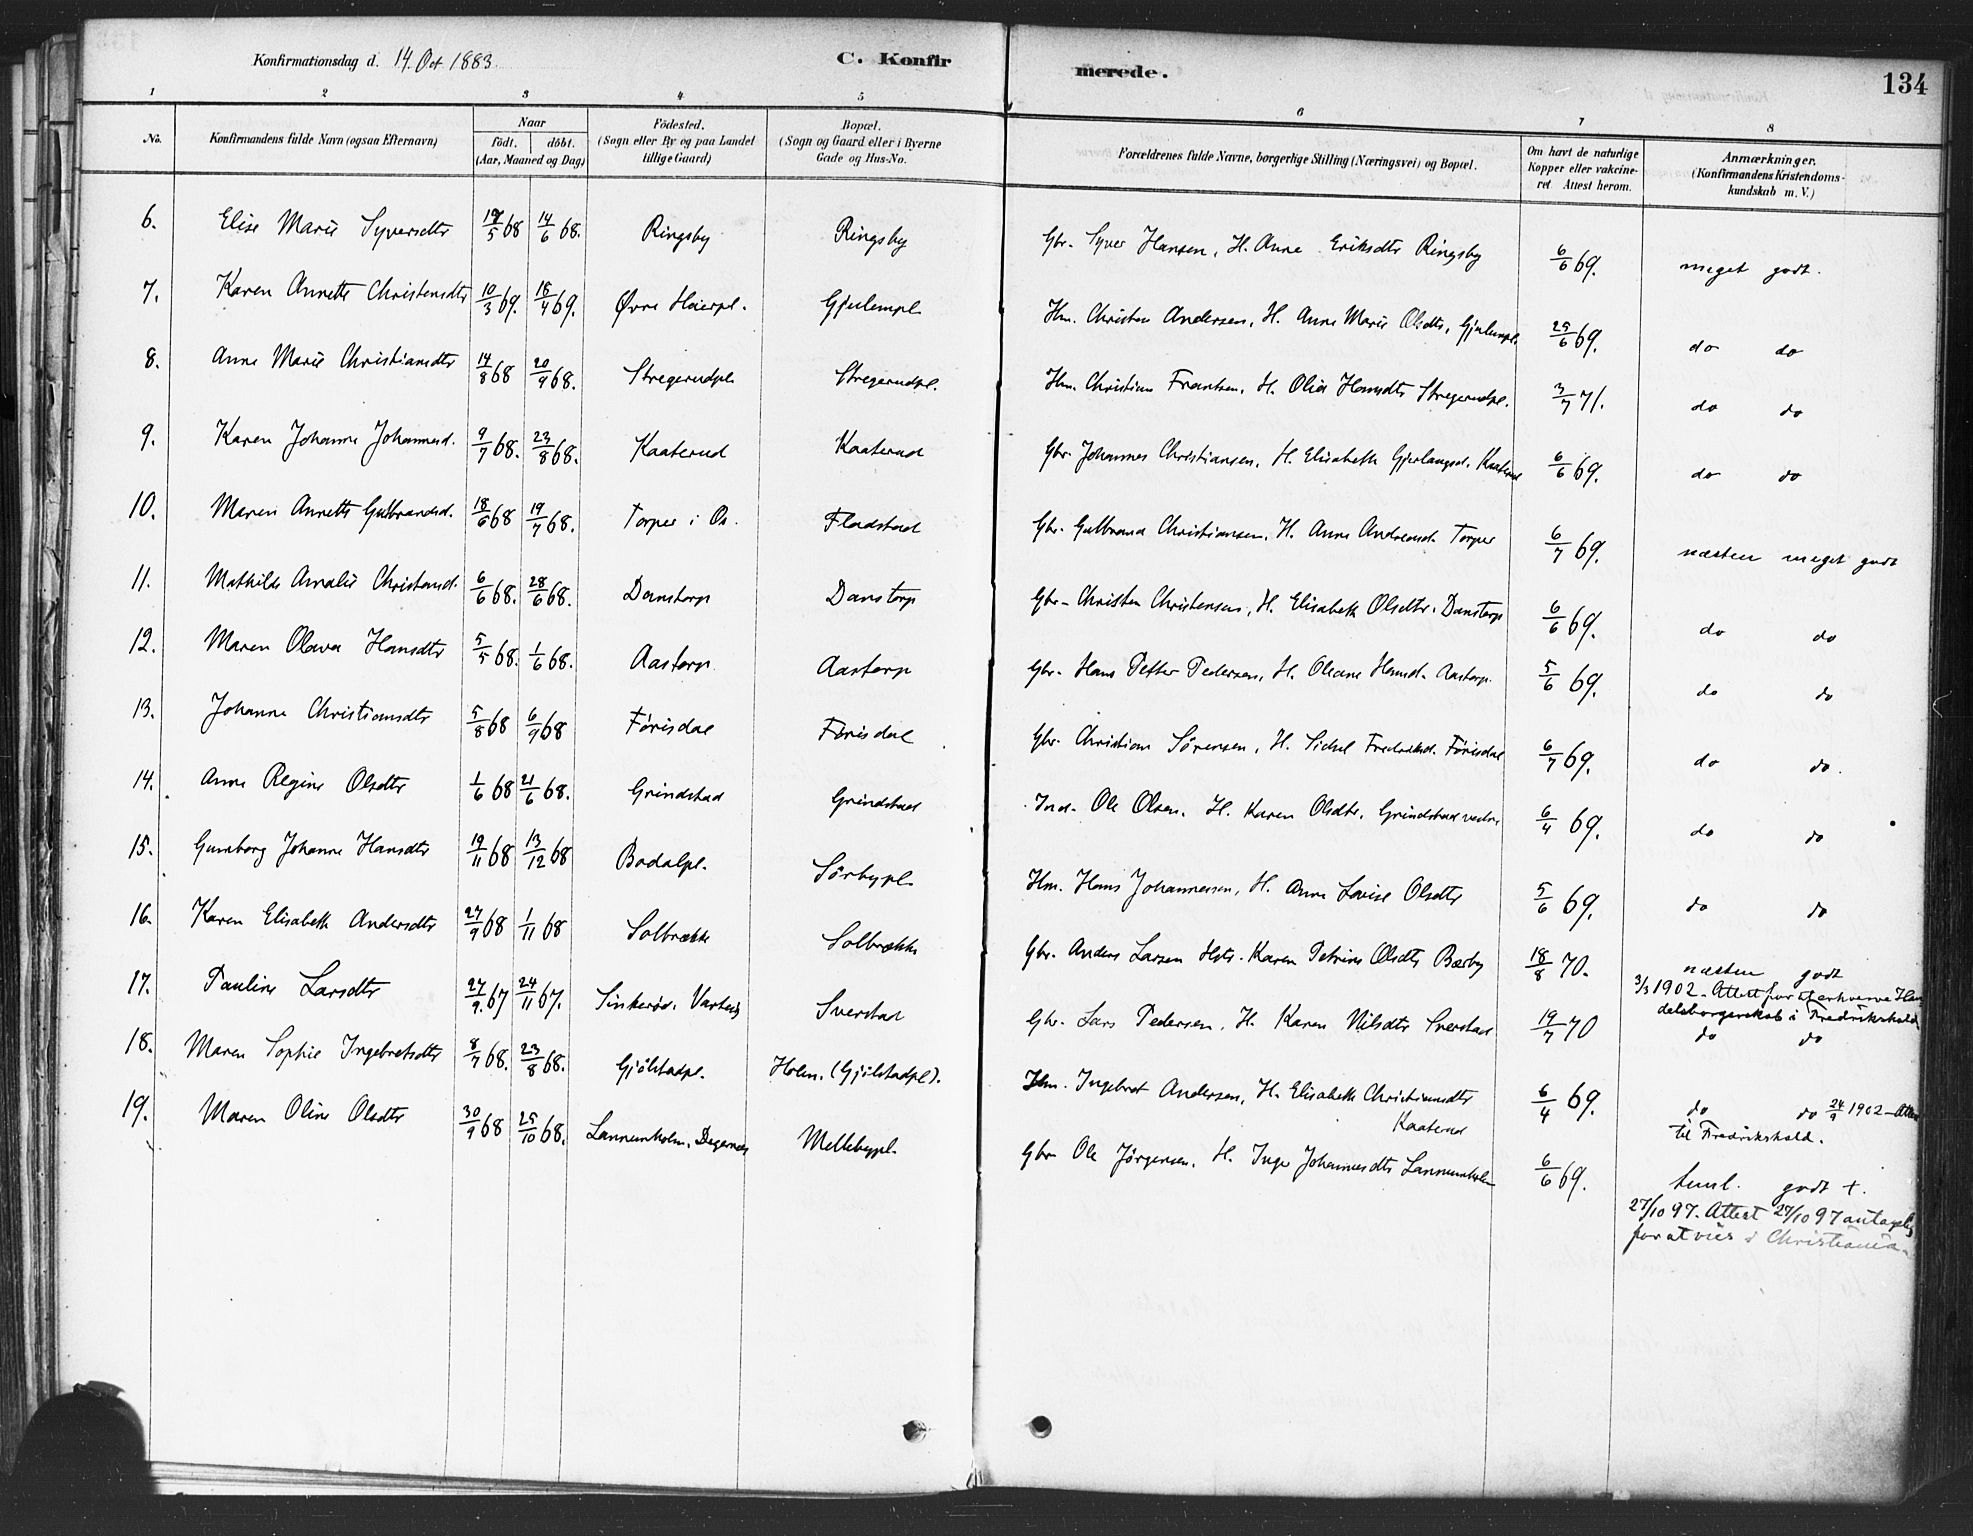 Konfirmationsdag d. 14. Oct 1883.
C. Konfirmerede.
134
1 2 3 4 5 6 7 8
No.
Konfirmandens fulde Navn (ogsaa Efternavn)
Naar
födt. döbt.
(Aar, Maaned og Dag)
Födested.
(Sogn eller By og paa Landet
tillige Gaard)
Bopæl.
(Sogn og Gaard eller i Byerne
Gade og Hus-No.
Forældrenes fulde Navne, borgerlige Stilling (Næringsvei) og Bopæl.
Om havt de naturlige
Kopper eller vakcine-
ret. Attest herom.
Anmærkninger.
(Konfirmandens Kristendoms-
kundskab m. V.)
6. Elise Marie Syversdtr 19/5 68 14/6 68. Ringsby Ringsby Gbr. Syver Hansen, H. Anne Eriksdtr Ringsby 6/6 69. meget godt.
7. Karen Annette Christensdtr 10/3 69. 18/4 69. Øvre Haierpl. Gjulempl. Hm. Christen Andersen, H. Anne Marie Olsdtr, Gjulempl. 25/6 69. do do
8. Anne Marie Christiansdtr 14/8 68 20/9 68. Stregerudpl. Stregerudpl. Hm. Christian Frantsen, H. Olia Hansdtr Stregerudpl. 3/7 71. do do
9. Karen Johanne Johannesd. 9/7 68. 23/8 68. Kaaterud Kaaterud Gbr. Johannes Christiansen, H. Elisabeth Gjerlaugsd. Kaaterud 6/6 69. do do
10. Maren Annette Gulbrandsd. 18/6 68 19/7 68. Torper i Os. Fladstad Gbr. Gulbrand Christiansen, H. Anne Andreasd. Torper 6/7 69. næsten meget godt
11. Mathilde Amalie Christensd. 6/6 68. 28/6 68. Danstorp Danstorp Gbr. Christen Christensen, H. Elisabeth Olsdtr. Danstorp 6/6 69. do do
12. Maren Olava Hansdtr 5/5 68. 1/6 68. Aastorp Aastorp Gbr. Hans Petter Pedersen, H. Oleane Hansd. Aastorp. 5/6 69. do do
13. Johanne Christiansdtr 5/8 68 6/9 68 Förisdal Förisdal Gbr. Christian Sörensen, H. Sichel Fredriksd. Förisdal 6/7 69. do do.
14. Anne Regine Olsdtr 1/6 68 21/6 68. Grindstad Grindstad Ind. Ole Olsen, H. Karen Olsdtr, Grindstad vestre 6/4 69. do do
15. Gunborg Johanne Hansdtr 19/11 68 13/12 68 Bodalpl. Sörbypl. Hm. Hans Johannessen, H. Anne Lovise Olsdtr 5/6 69. do do
16. Karen Elisabeth Andersdtr 27/9 68 1/11 68 Solbrække Solbrække Gbr. Anders Larsen Hstr. Karen Petrine Olsdtr Bærby 18/8 70. næsten godt
3/3 1902. Attest for at erhverve Han-
delsborgerskab i Fredrikshald
17. Pauline Larsdtr 27/9. 67 24/11 67. Sinkeröd, Varteig Sverstad Gbr. Lars Pedersen, H. Karen Nilsdtr Sverstad 19/7 70 do do
18. Maren Sophie Ingebretsdtr 8/7 68. 23/8 68. Gjölstadpl. Holm. (Gjölstadpl). Hm. Ingebret Andersen, H. Elisabeth Christiansdtr
Kaaterud 6/4 69. do do 24/9 1902 - Attest
til Fredrikshald.
19. Maren Oline Olsdtr 30/9 68 25/10 68. Lannemholm, Degernes Mellebypl. Gbr Ole Jörgensen, H. Inger Johannesdtr Lannemholm 6/6 69. teml. godt +.
27/10 97. Attest 27/10 97
for at vies i Christiania.